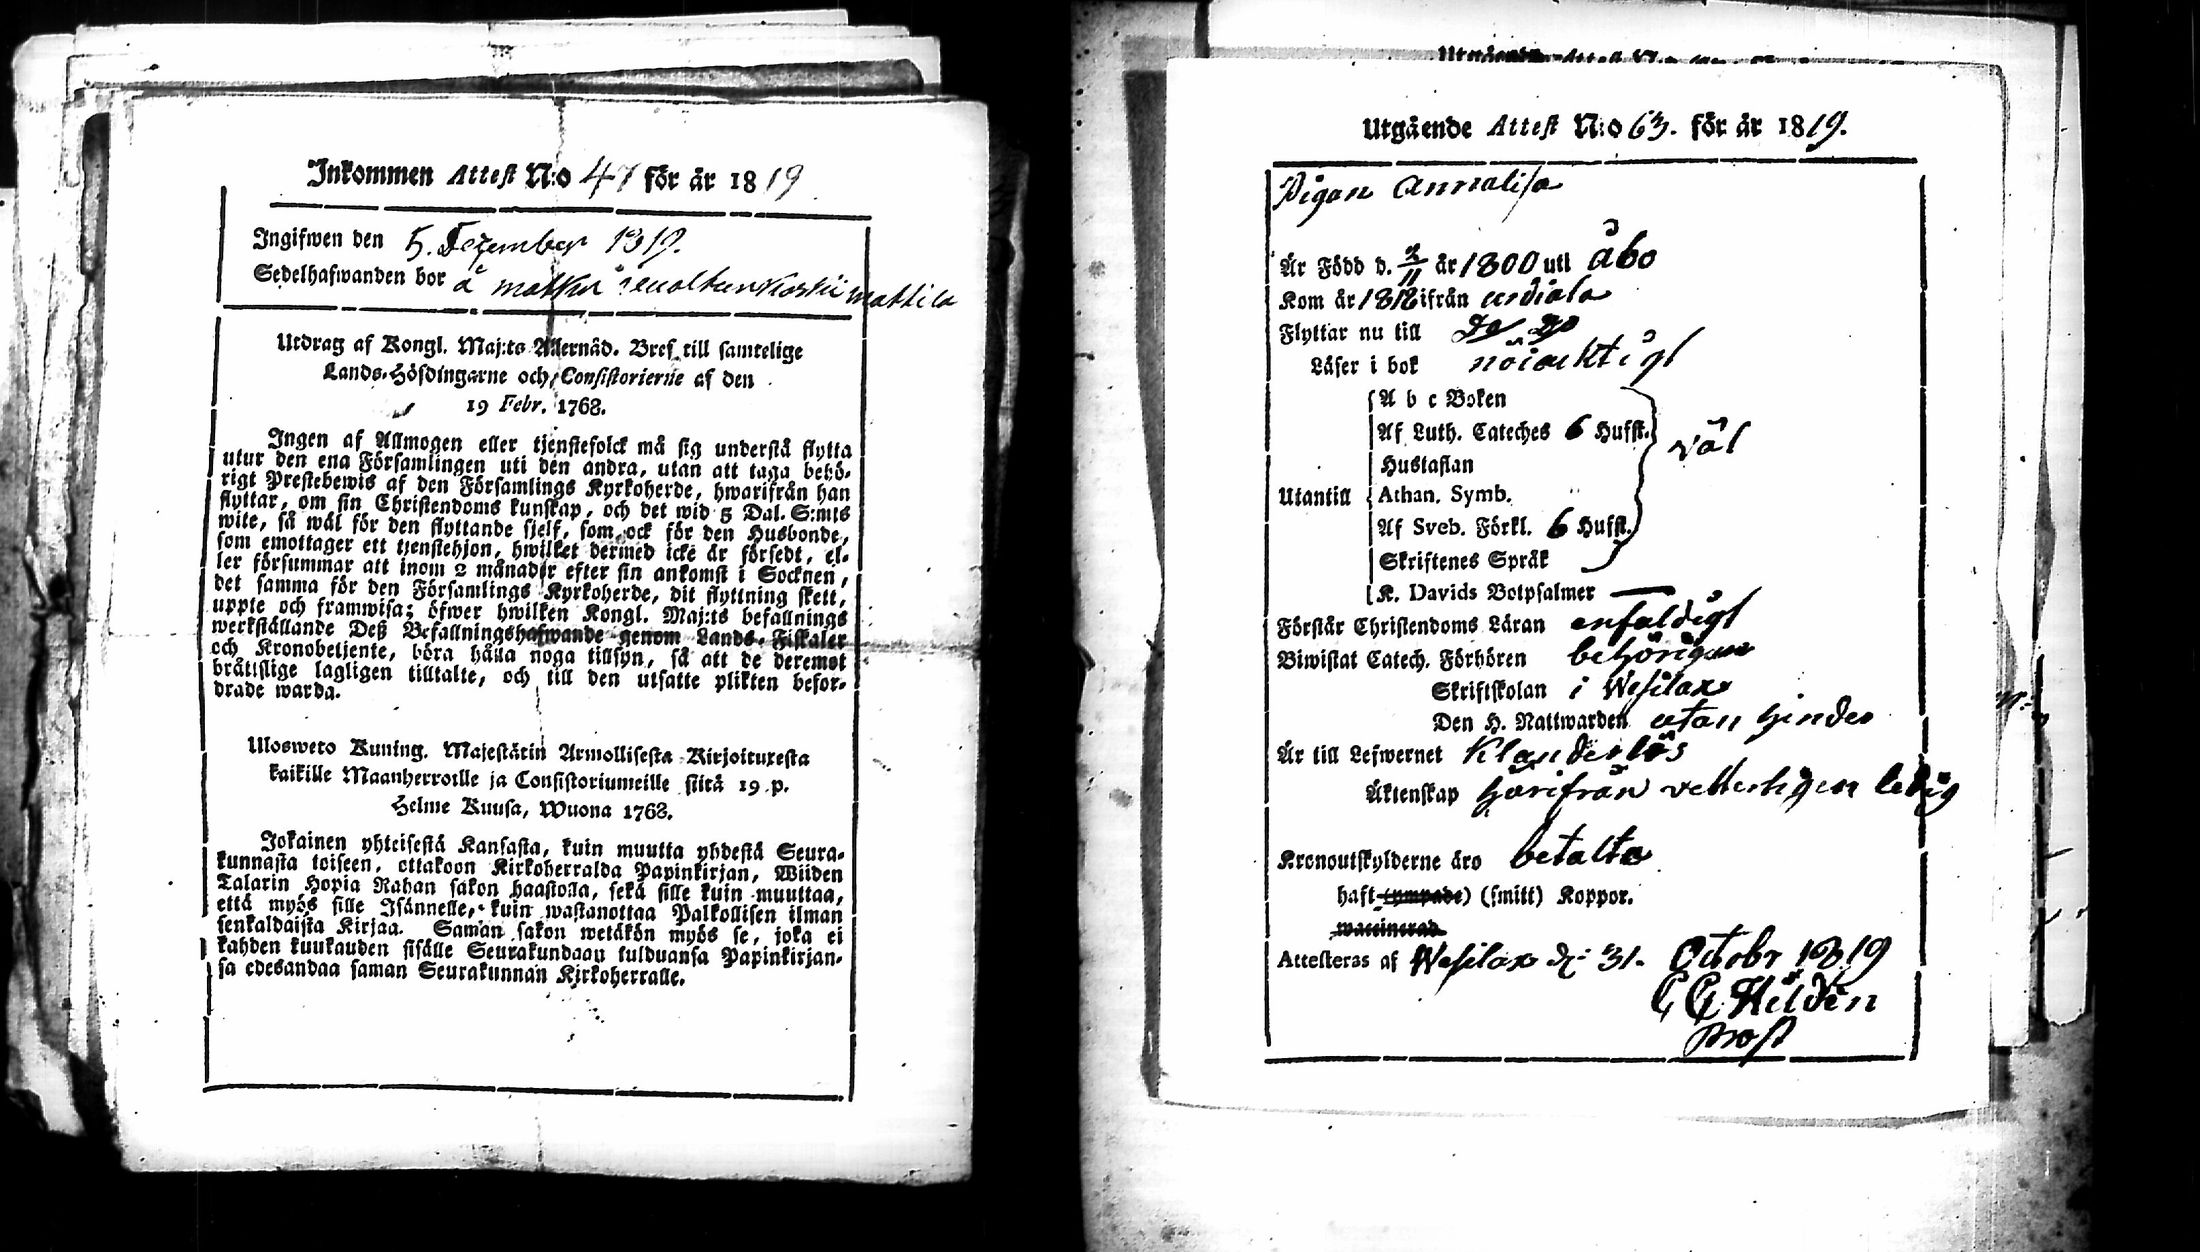 Inkommen Attest N:o 47 för år 1819
Ingifwen den 5. Dezember 1819.
Sedelhafwanden bor å matku mattila
Utdrag af Kongl. Maj:ts Allernåd. Bref till samtelige
Lands-Höfdingarne och Consistorierne af den
19 Febr. 1768.
Ingen af Allmogen eller tjenstefolck må sig understå flytta
utur den ena Församlingen uti den andra, utan att taga behö-
rigt Prestebewis af den Församlings Kyrkoherde, hwarifrån han
flyttar, om sin Christendoms kunskap, och det wid 5 Dal. S:mts
wite, så wäl för den flyttande sjelf, som ock för den Husbonde,
som emottager ett tjenstehjon, hwilket dermed icke är försedt, el-
ler försummar att inom 2 månader efter sin ankomst i Socknen,
det samma för den Församlings Kyrkoherde, dit flyttning skett,
uppte och framwisa; öfwer hwilken Kongl. Maj:ts befallnings
werkställande Deß Befallningshafwande genom Lands-Fiskaler
och Kronobetjente, böra hålla noga tillsyn, så att de deremot
bråttslige lagligen tilltalte, och till den utsatte plikten befor-
drade warda.
Ulosweto Kuning. Majestätin Armollisesta Kirjoituxesta
kaikille Maanherroille ja Consistoriumeille siitä 19 p.
Helme Kuusa, Wuona 1768.
Jokainen yhteisestä Kansasta, kuin muutta yhdestä Seura-
kunnasta toiseen, ottakoon Kirkoherralda Papinkirjan, Wiiden
Talarin Hopia Rahan sakon haastolla, sekä sille kuin muuttaa,
että myös sille Isännelle, kuin wastanottaa Palkollisen ilman
senkaldaista Kirjaa. Saman sakon wetäkön myös se, joka ei
kahden kuukauden sisälle Seurakundaan tulduansa Papinkirjan-
sa edesandaa saman Seurakunnan Kirkoherralle.
Utgående Attest N:o 63. för år 1819.
Pigan Annalisa
Är Född d. 2/11 år 1800 uti Åbo
Kom år 1818 ifrån urdiala
Flyttar nu till
Läser i bok nöiaktigt
A b c Boken
Af Luth. Cateches 6 Hufst.
Hustaflan
väl
Utantill Athan. Symb.
Af Sveb. Förkl. 6 Hufst.
Skriftenes Språk
K. Davids Botpsalmer —
Förstår Christendoms Läran enfaldigt
Biwistat Catech. Förhören behörigen
Skriftskolan i Wesilax
Den H. Nattwarden utan hinder
Är till Lefwernet Klanderlös
Äktenskap härifrån vetterligen ledig
Kronoutskylderne äro betalta
haft (ympade) (smitt) Koppor.
waccinerad
Attesteras af Wesilax d: 31. Octobr 1819
C G Hildén
Prost